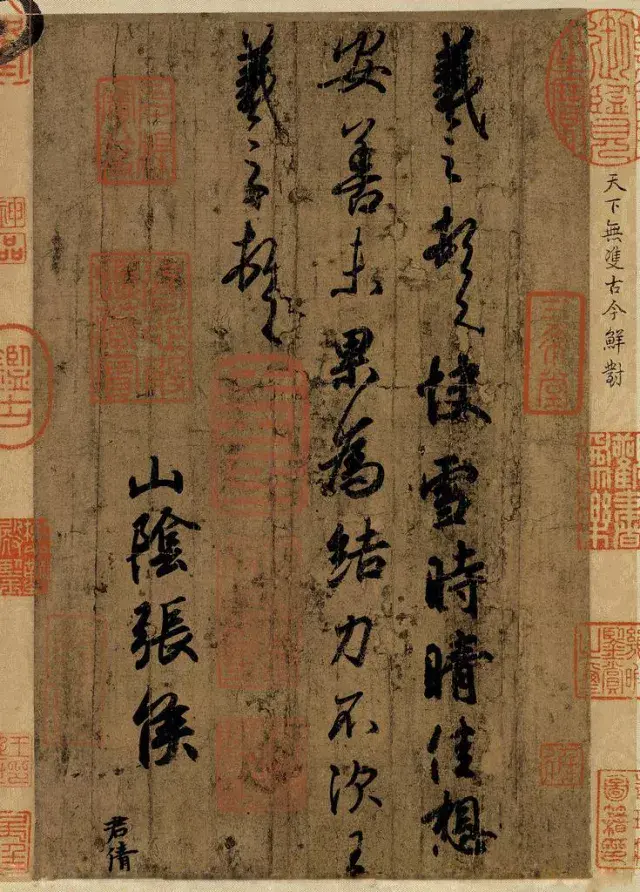 天下無雙古今鮮對
三希堂
羲之頓首快雪時晴佳想
安善未果為結力不次王
羲之頓首
山陰張侯
君倩
神品